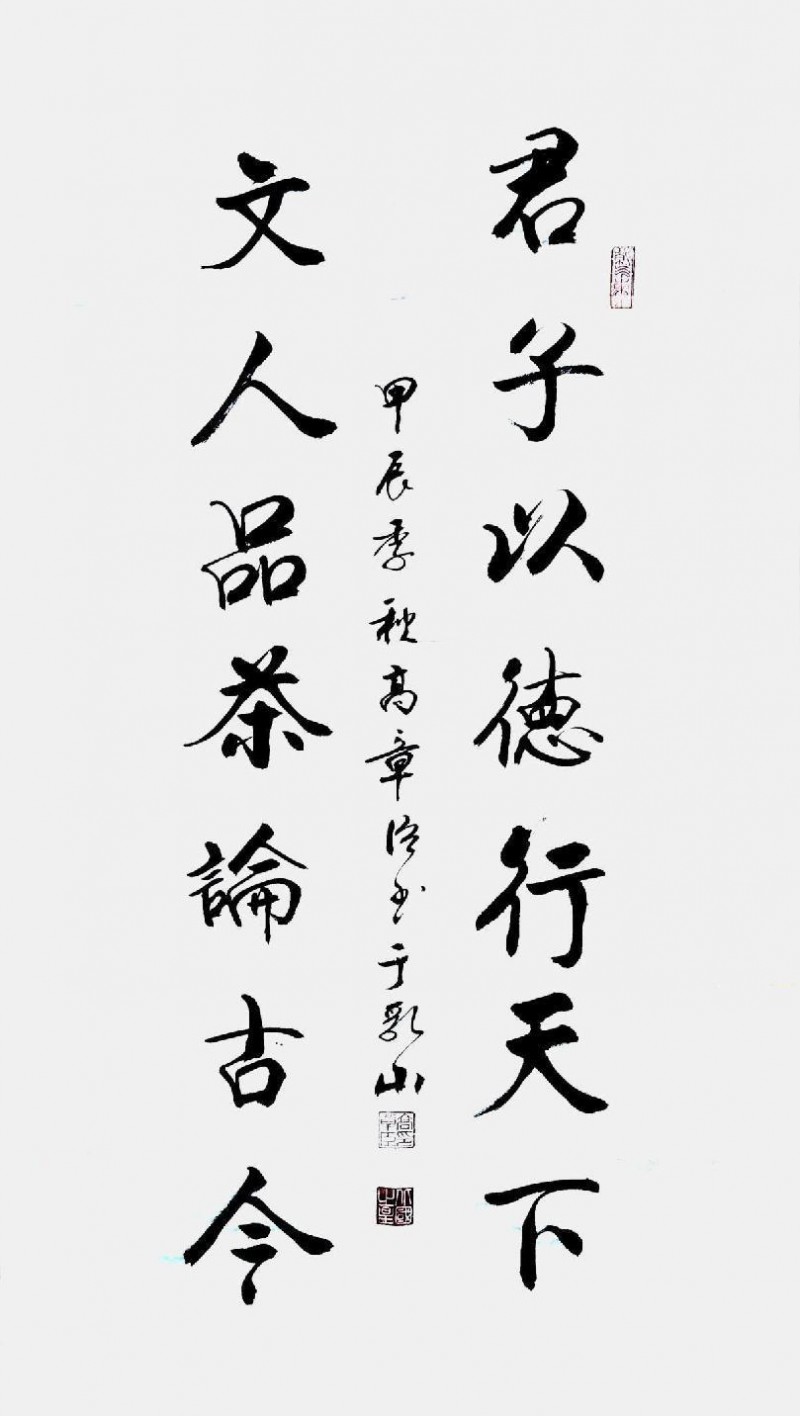 君子以德行天下
甲辰季秋高章治书于乳山
文人品茶論古今